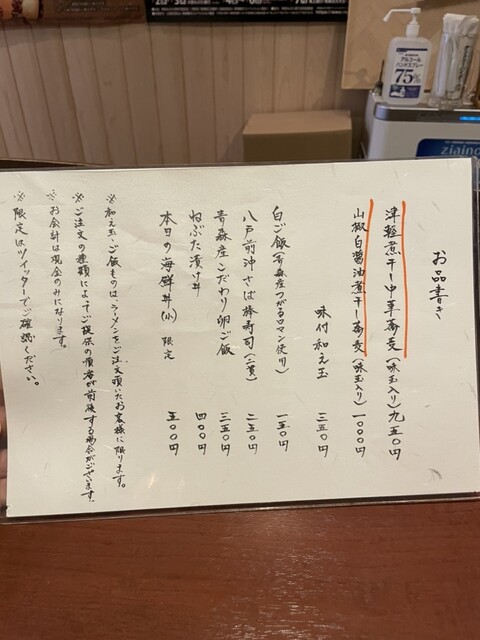 お品書き
津軽煮干し中華蕎麦(味玉入り)九五〇円
山椒白醤油煮干し蕎麦(味玉入り)一〇〇〇円
味付和え玉 三五〇円
白ご飯(青森産つがるロマン使用) 一五〇円
八戸前沖さば棒寿司(二貫) 二五〇円
青森産こだわり卵ご飯 三五〇円
ねぶた漬け丼 四〇〇円
本日の海鮮丼(小) 限定 五〇〇円
※和え玉・ご飯ものは、ラーメンをご注文頂いたお客様に限ります。
※ご注文の種類によってご提供の順番が前後する場合がございます。
※お会計は現金のみになります。
※限定はツイッターでご確認ください。
アルコール
ハンドスプレー
75%
ziaino